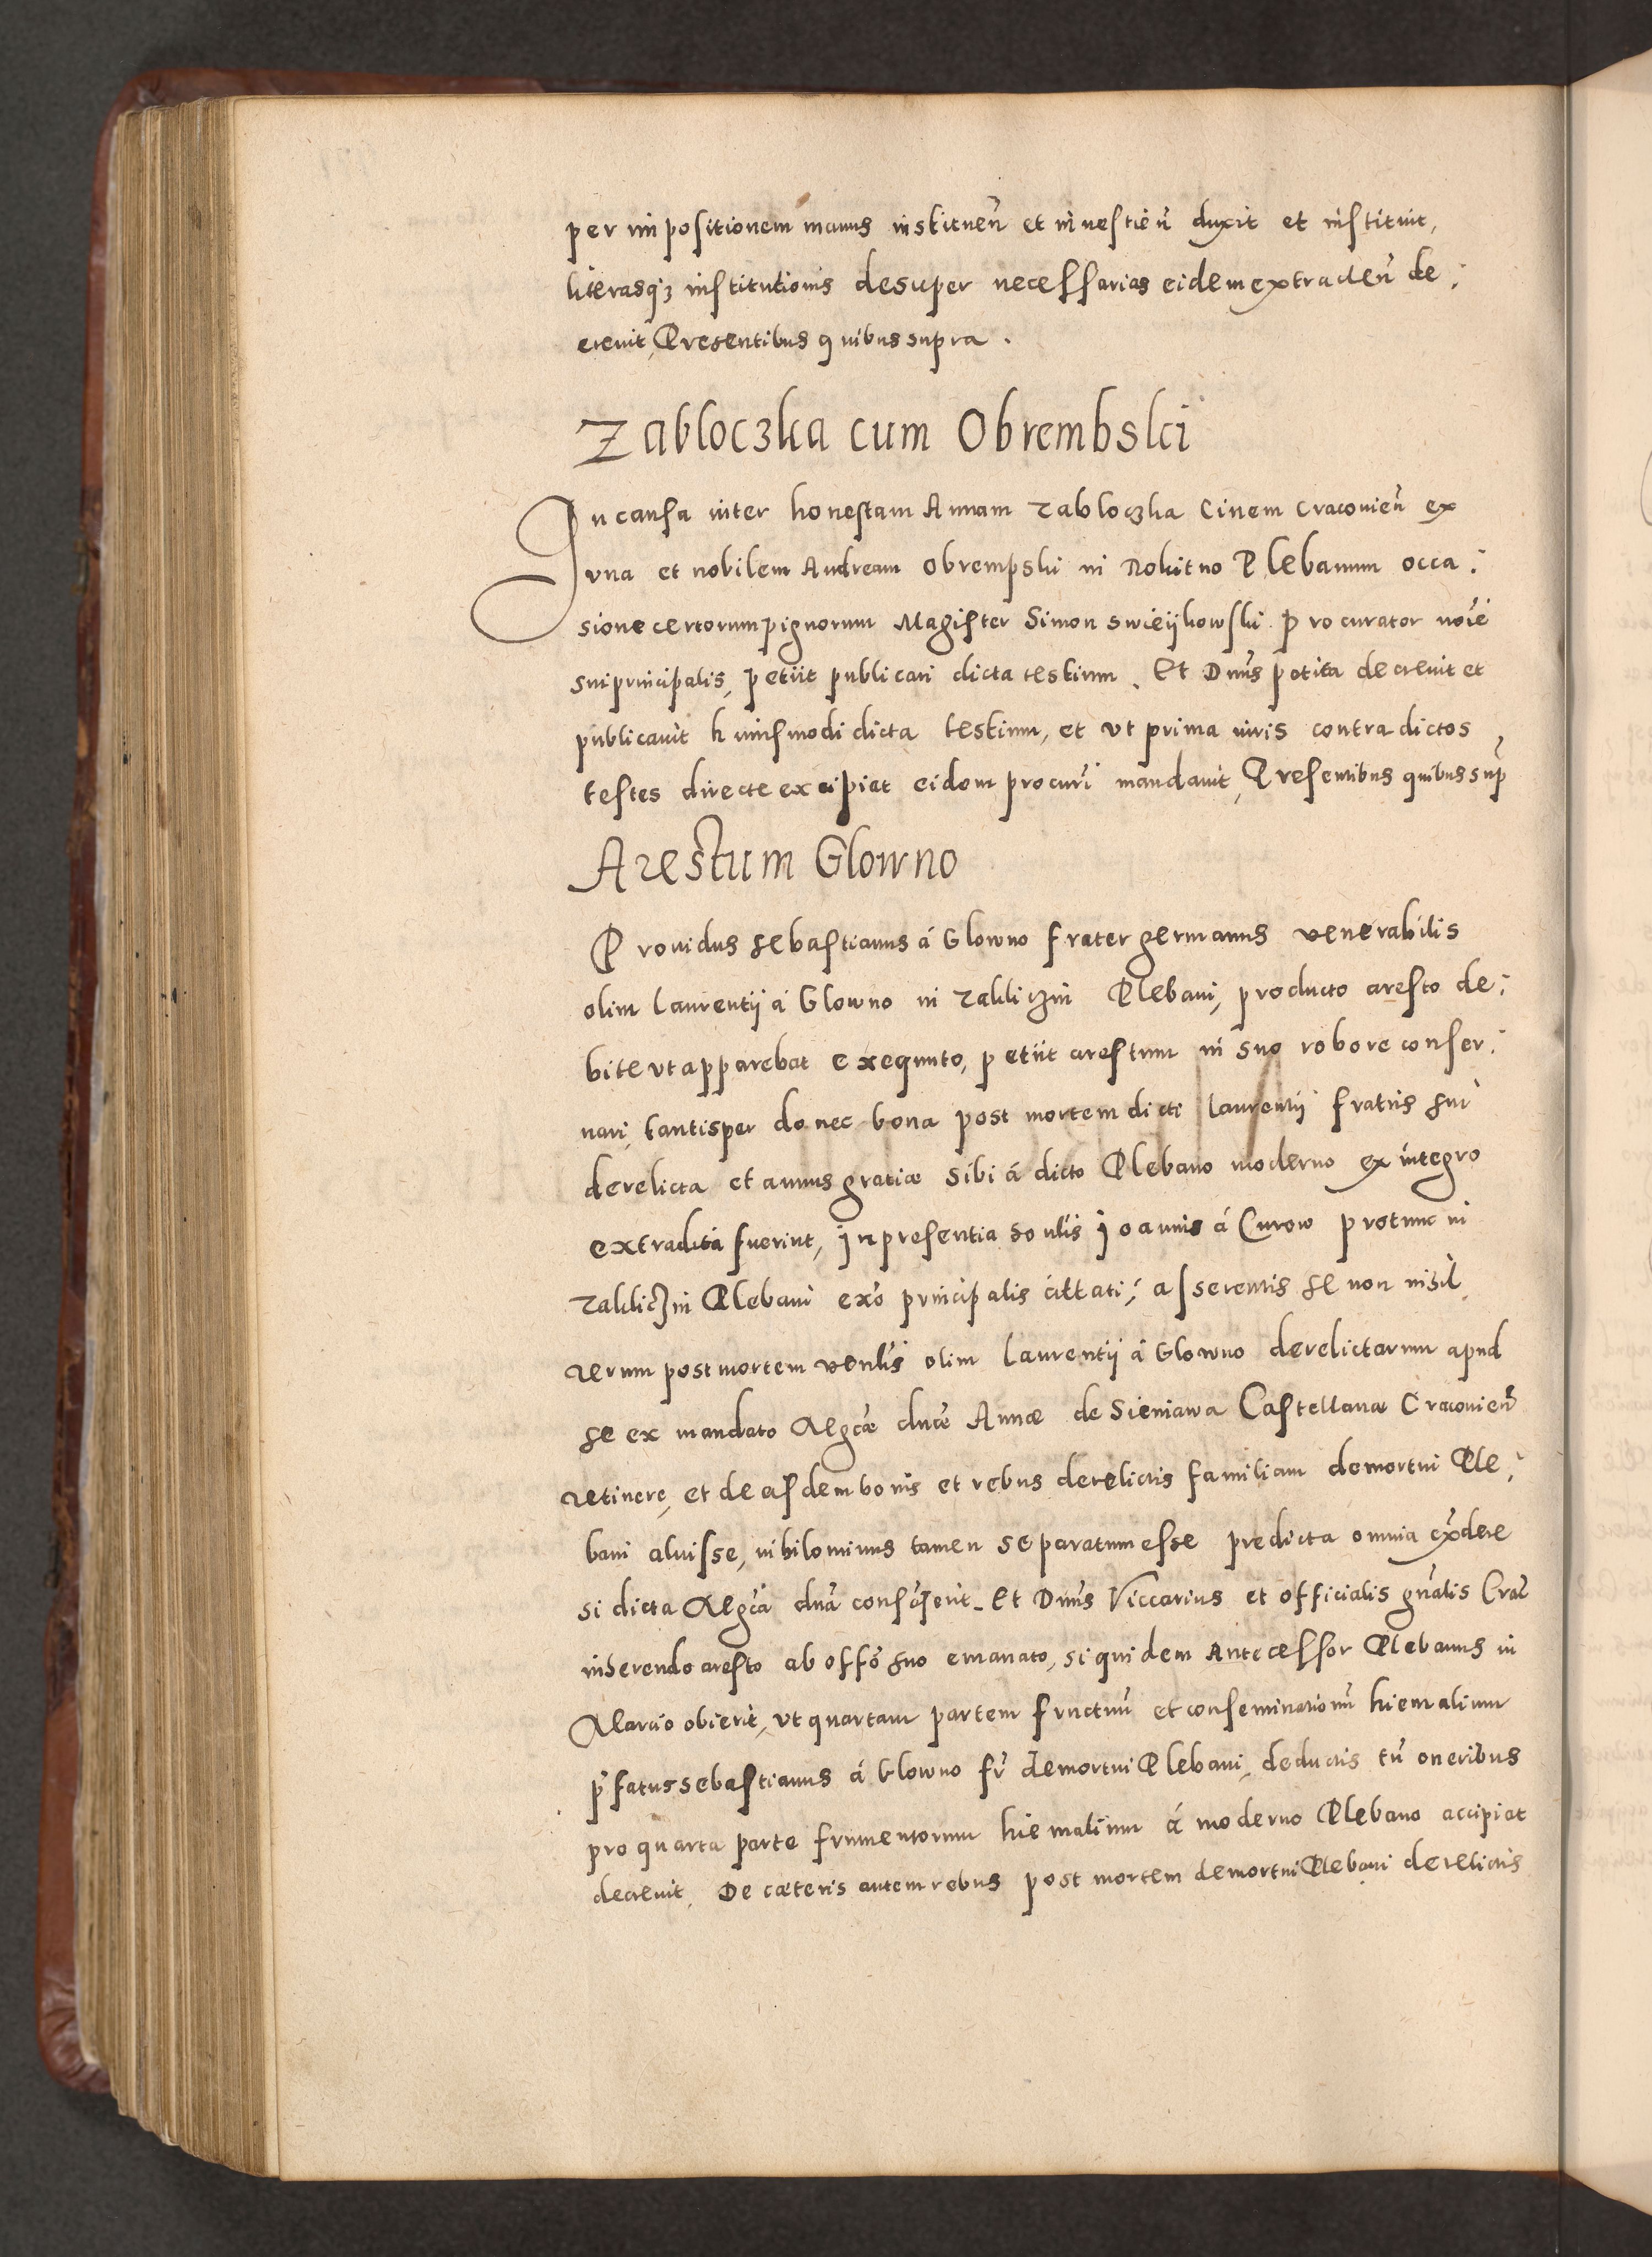 per impositionem manus instituen̄ et inuestien̄ duxit et instituit,
literasq3 institutionis desuper necessarias eidem extraden̄ de:
creuit, Presentibus quibus supra.
Zabloczka cum Obrembski
In causa inter honestam Annam Zabloczka Ciuem Cracouien̄ ex
vna et nobilem Andream Obrempski in Rokitno Plebanum occa:
sione certorum pignorum Magister Simon Swieijkowski procurator noīe
sui principalis, petiit publicari dicta testium. Et Dn̄s petita decreuit et
publicauit huiusmodi dicta testium, et vt prima iuris contra dictos
testes directe excipiat eidem procuri mandauit, Presentibus quibus sup̄
Arestum Glowno
Prouidus Sebastianus á Glowno frater germanus venerabilis
olim Laurentij á Glowno in Zakliczin Plebani, producto aresto de:
bite vt apparebat exequuto, petiit arestum in suo robore conser:
uari, tantisper donec bona post mortem dicti Laurentij fratris sui
derelicta et annus gratiæ sibi á dicto Plebano moderno ex integro
extradita fuerint, in presentia honlis Joannis á Curow protunc in
Zakliczin Plebani exo principalis cittati; asserentis se non nihil
rerum post mortem venlis olim Laurentij á Glowno derelictarum apud
se ex mandato Mgcæ dnæ Annæ de Sieniawa Castellanæ Cracouien̄
retinere, et de eisdem bonis et rebus derelictis familiam demortui Ple:
bani aluisse, nihilominus tamen se paratum esse predicta omnia ex̄dere
si dicta Mgcā dnā consenserit. Et Dn̄s Viccarius et officialis gn̄alis Crac̄
inherendo aresto ab offō suo emanato, siquidem Antecessor Plebanus in
Marcio obierit, vt quartam partem fructuū et conseminationū hiemalium
p̄fatus Sebastianus á Glowno fr̄ demortui Plebani, deductis tn̄ oneribus
pro quarta parte frumentorum hiemalium á moderno Plebano accipiat
decreuit. De cæteris autem rebus post mortem demortui Plebani derelictis